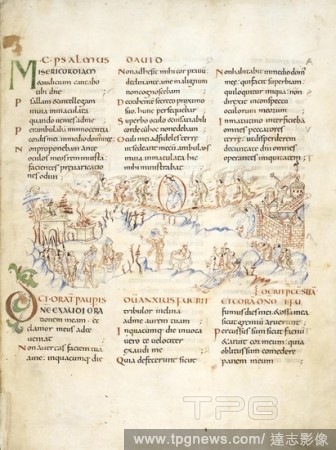 C PSALMUS DAVID
MISERICORDIAM
& iudicium canta
bo tibi dne
Psallam & intellegam
in uia inmaculata
quando uenies ad me
Perambulabam in innocentia
cordis mei in medio domus
Non proponebam ante
oculos meos rem iniusta
facientes praeuaricatio
nes odiui
Non adhesit mihi cor prauu
declinante a me malignum
non cognoscebam
Detrahente secreto proximo
suo hunc persequebar
Superbo oculo & insatiabili
corde cum hoc non edebam
Oculi mei ad fideles terre
ut sedeant mecum ambulans
uia inmaculata hic
mihi ministrabat
Non habitabit in medio dom
mee qui facit superbiam
qui loquitur iniqua non
direxit in conspectu
oculorum meorum
In matutino interficieba
omnes peccatores
terre ut disperderem
de ciuitate dni omnes
operantes iniquitatem
ORATIO PAUPERIS
DNE EXAUDI ORA
tionem meam et
clamor meus ad te
ueniat
Non auertas faciem tua
a me in quacumque die
tribulor inclina
ad me aurem tuam
In quacumque die inuoca
uero te uelociter
exaudi me
Quia defecerunt sicut
fumus dies mei & ossa mea
sicut gremiu aruerunt
Percussus sum sicut fenum
& aruit cor meum quia
oblitus sum comedere
panem meum
TPG
www.tpgnews.com / 達志影像